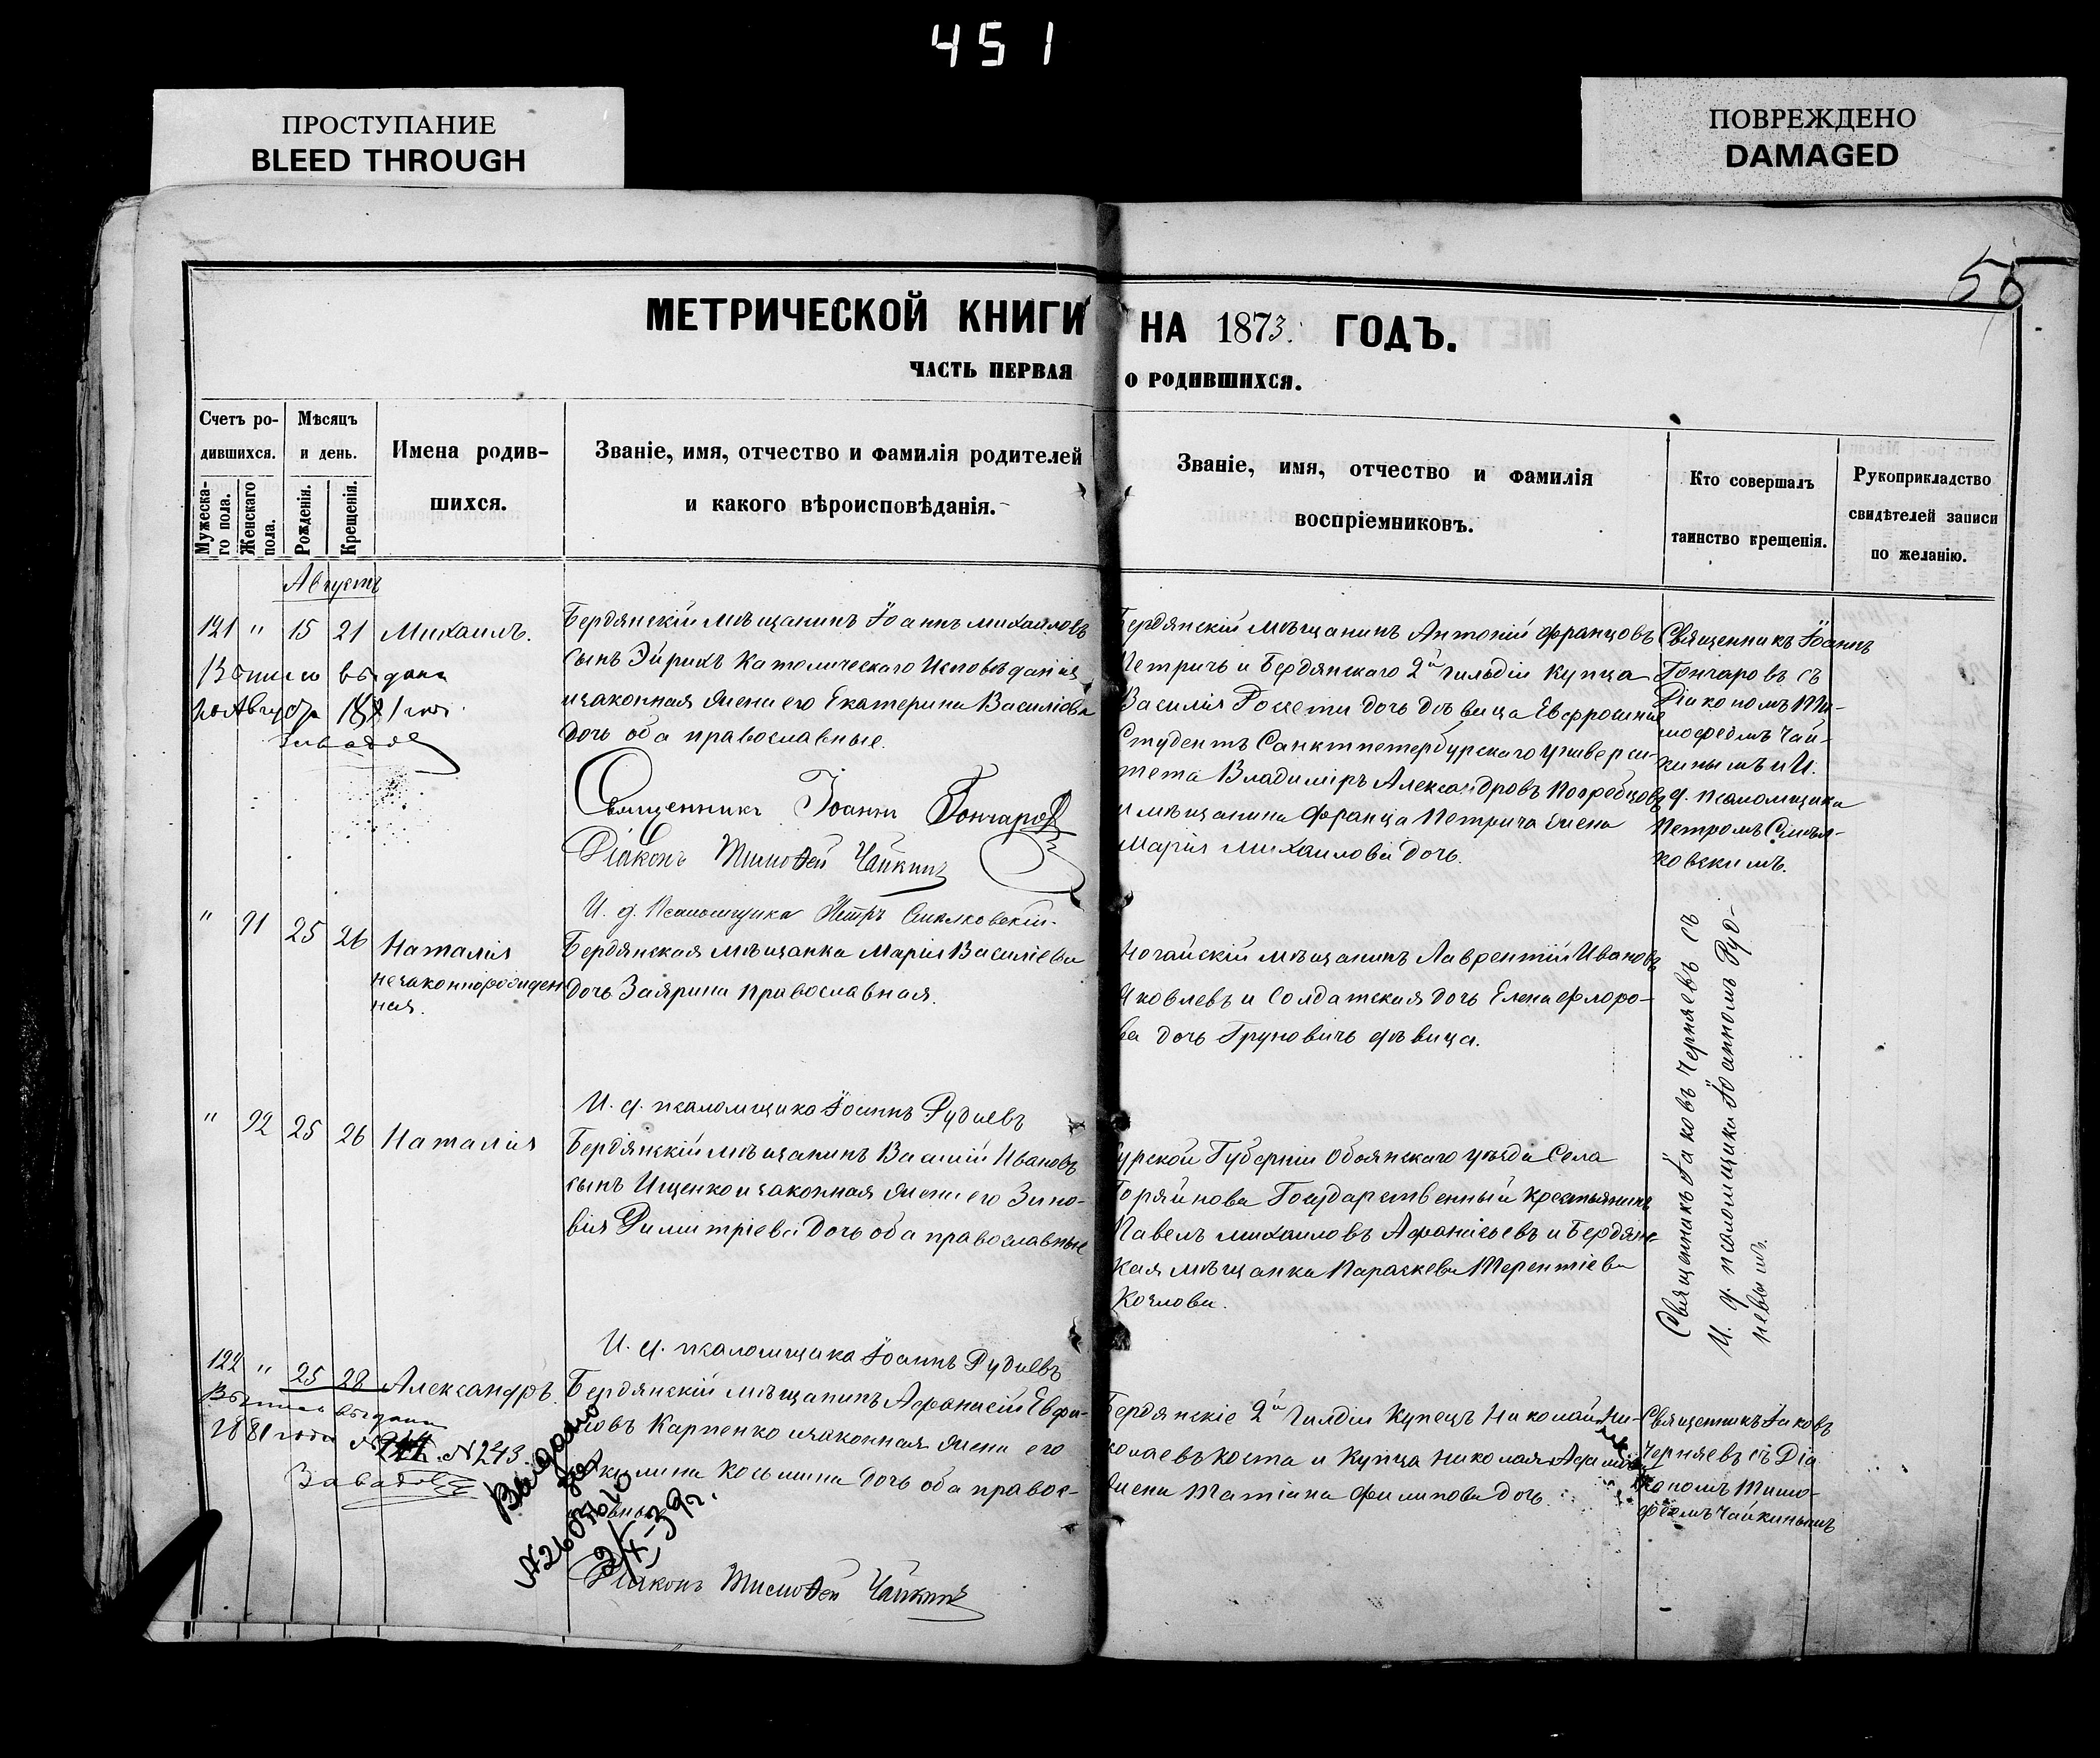 451
ПРОСТУПАНИЕ
BLEED THROUGH
ПОВРЕЖДЕНО
DAMAGED
55
МЕТРИЧЕСКОЙ КНИГИ НА 1873. ГОДЪ.
ЧАСТЬ ПЕРВАЯ О РОДИВШИХСЯ.
Счетъ ро-
дившихся.
Мужеска-
го пола.
Женскаго
пола.
Мѣсяцъ
и день.
Рожденія.
Крещенія.
Имена родив-
шихся.
Званіе, имя, отчество и фамилія родителей
и какого вѣроисповѣданія.
Званіе, имя, отчество и фамилія
воспріемниковъ.
Кто совершалъ
таинство крещенія.
Рукоприкладство
свидѣтелей записи
по желанію.
Августъ
121 " 15 21 Михаилъ.
выдана
20 Августа 1881 год.
Завадов
Бердянскій мѣщанинъ Іоаннъ Михайловъ
сынъ Эйрихъ Католическаго Исповѣданія
и законная жена его Екатерина Василіева
дочь оба православные.
Священникъ Іоаннъ Гончаровъ
Діаконъ Тимоѳей Чайкинъ
И. д. Псаломщика Петръ Смѣлковскій.
Бердянскій мѣщанинъ Антоній Францовъ
Петричъ и Бердянскаго 2й гильдіи купца
Василія дочь дѣвица Евфросинія
Студентъ Санктпетербурскаго универси-
тета Владиміръ Александровъ Погребцовъ
и мѣщанина Франца Петрича жена
Марія Михаилова дочь.
Священникъ Іоаннъ
Гончаровъ съ
Діакономъ Ти-
мофеемъ Чай-
кинымъ и И.
д. псаломщика
Петромъ Смѣл-
ковскимъ.
" 91 25 26 Наталія
незаконнорожден
ная.
Бердянская мѣщанка Марія Василіева
дочь Заярина православная.
И. д. псаломщика Іоаннъ Рудневъ
Ногайскій мѣщанинъ Лаврентій Ивановъ
Яковлевъ и Солдатская дочь Елена Флоро-
ва дочь Груновичъ дѣвица.
Священникъ Іаковъ Черняевъ съ
И. д. псаломщика Іоанномъ Руд-
невымъ.
" 92 25 26 Наталія
Бердянскій мѣщанинъ Василій Ивановъ
сынъ Ищенко и законная жена его Зино-
вія Димитріева дочь оба православные
И. д. псаломщика Іоаннъ Рудневъ
Курской Губерніи Обоянскаго уѣзда Села
Горяйнова Государственный крестьянинъ
Павелъ Михаиловъ Афанасьевъ и Бердянс-
кая мѣщанка Параскева Терентіева
Козлова.
122 " 25 28 Александръ.
выдана
1881 года № N 243.
Завадов
Выдано
N2603610
2/X-39г.
Бердянскій мѣщанинъ Афанасій Евфи-
мовъ Карпенко и законная жена его
Акилина Косьмина дочь оба правос-
лавные
Діаконъ Тимоѳей Чайкинъ
Бердянскіе 2й Гилдіи Купецъ Николай Ни-
колаевъ Коста и Купца Николая
жена Татіана Филипова дочь.
Священникъ Іаковъ
Черняевъ съ Діа
кономъ Тимо-
феемъ Чайкинымъ